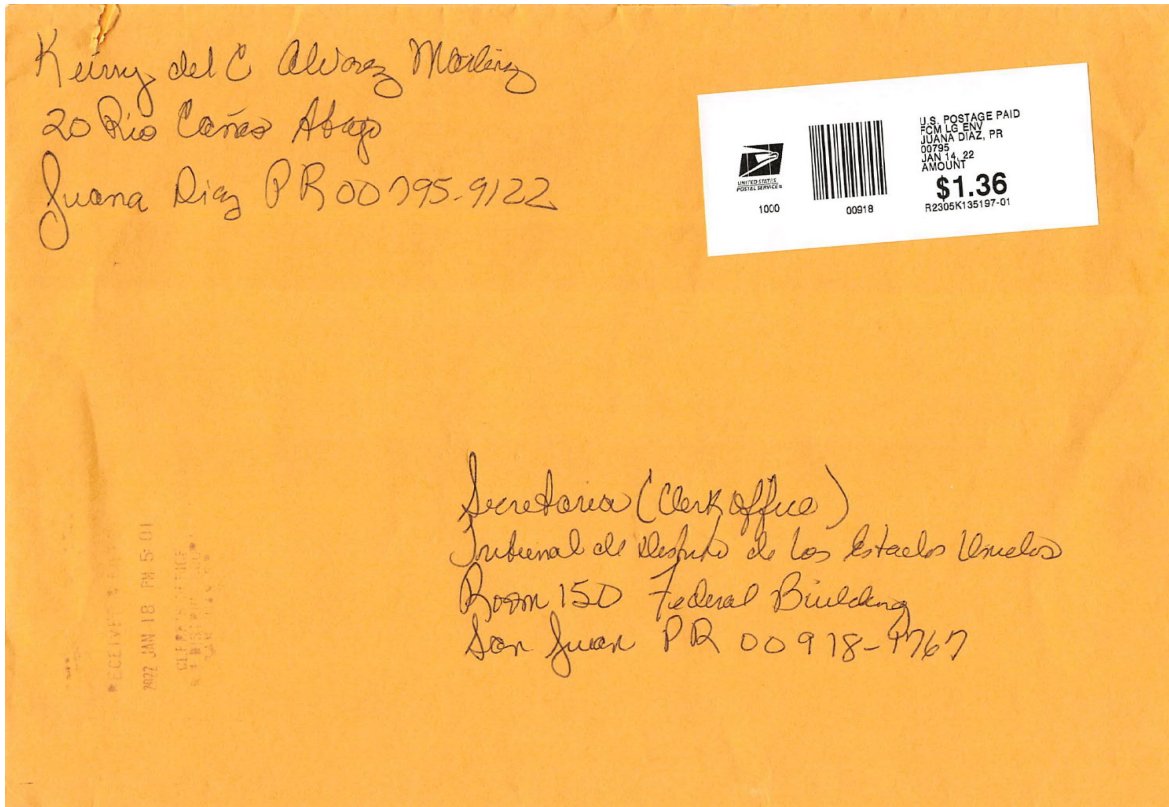 del C Alvarez
20 Rio Cañas Abajo
Juana Diaz PR 00795-9122
UNITED STATES
POSTAL SERVICE®
1000
00918
U.S. POSTAGE PAID
FCM LG ENV
JUANA DIAZ, PR
00795
JAN 14, 22
AMOUNT
$1.36
R2305K135197-01
Secretaria (Clerk office)
Tribunal de Distrito de Los Estados Unidos
Room 150 Federal Building
San Juan PR 00918-1767
2022 JAN 18 PM 5:01